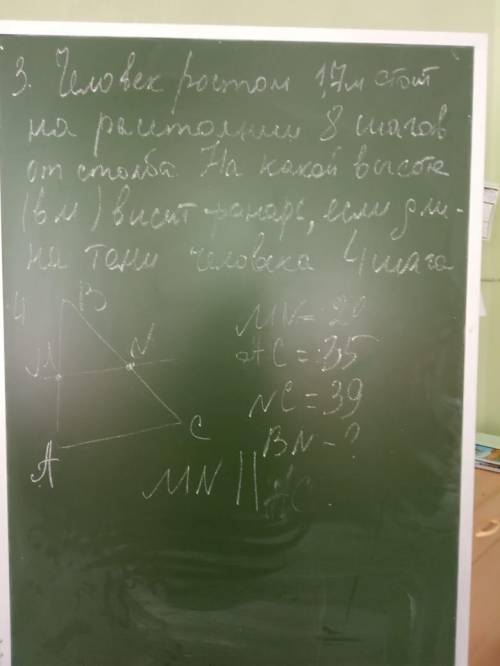 3. Человек ростом 1,7 м стоит
на расстоянии 8 шагов
от столба. На какой высоте
(в м) висит фонарь, если дли-
на тени человека 4 шага
4
B
M
N
A
C
MN = 20
AC = 35
NC = 39
BN - ?
MN || AC